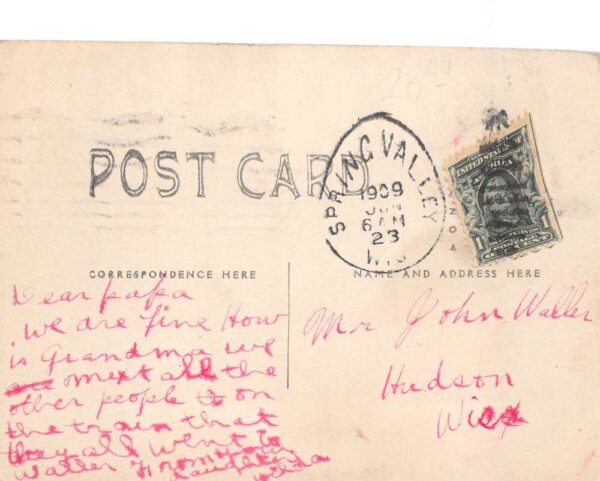 20.00
POST CARD
SPRING VALLEY
1909
JUN
6 AM
23
WIS
UNITED STATES OF
AMERICA
1 POSTAGE 1
CENT
CORRESPONDENCE HERE
NAME AND ADDRESS HERE
Dear papa
we are fine How
is Grandma we
are mext all the
other people to on
the train that
they all went to
Waller From your
daughter
Mr John Waller
Hudson
Wisx